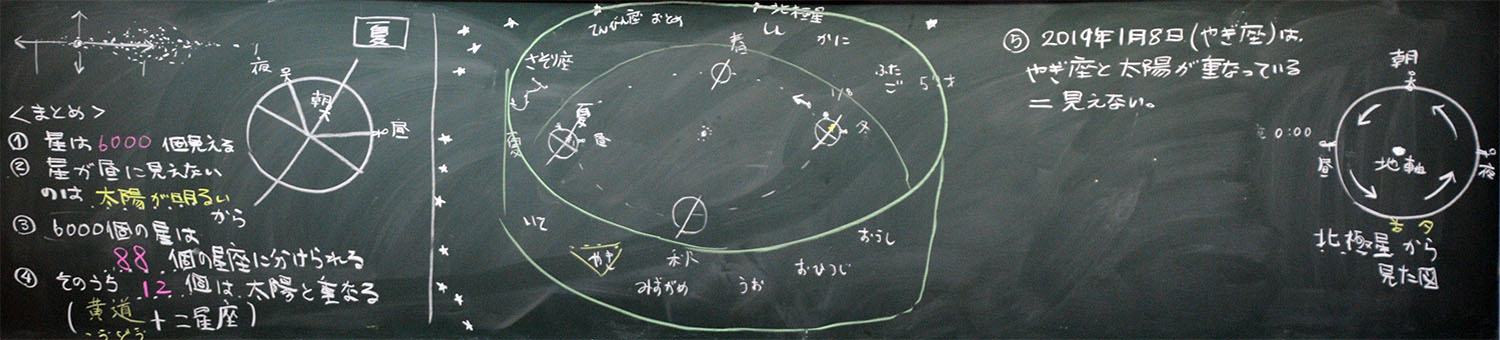 夏
夜
朝
昼
<まとめ>
① 星は6000個見える
② 星が昼に見えない
のは太陽が明るい
から
③ 6000個の星は
88個の星座に分けられる
④ そのうち12個は太陽と重なる
(黄道十二星座)
こうどう
てんびん座 おとめ
北極星
しし
かに
ふたご
さそり座
春
夏
昼
夏
1/8
冬
秋
いて
やぎ
みずがめ
うお
おひつじ
おうし
⑤ 2019年1月8日(やぎ座)は、
やぎ座と太陽が重なっている
=見えない。
朝
0:00
昼
地軸
夜
夕
北極星から
見た図